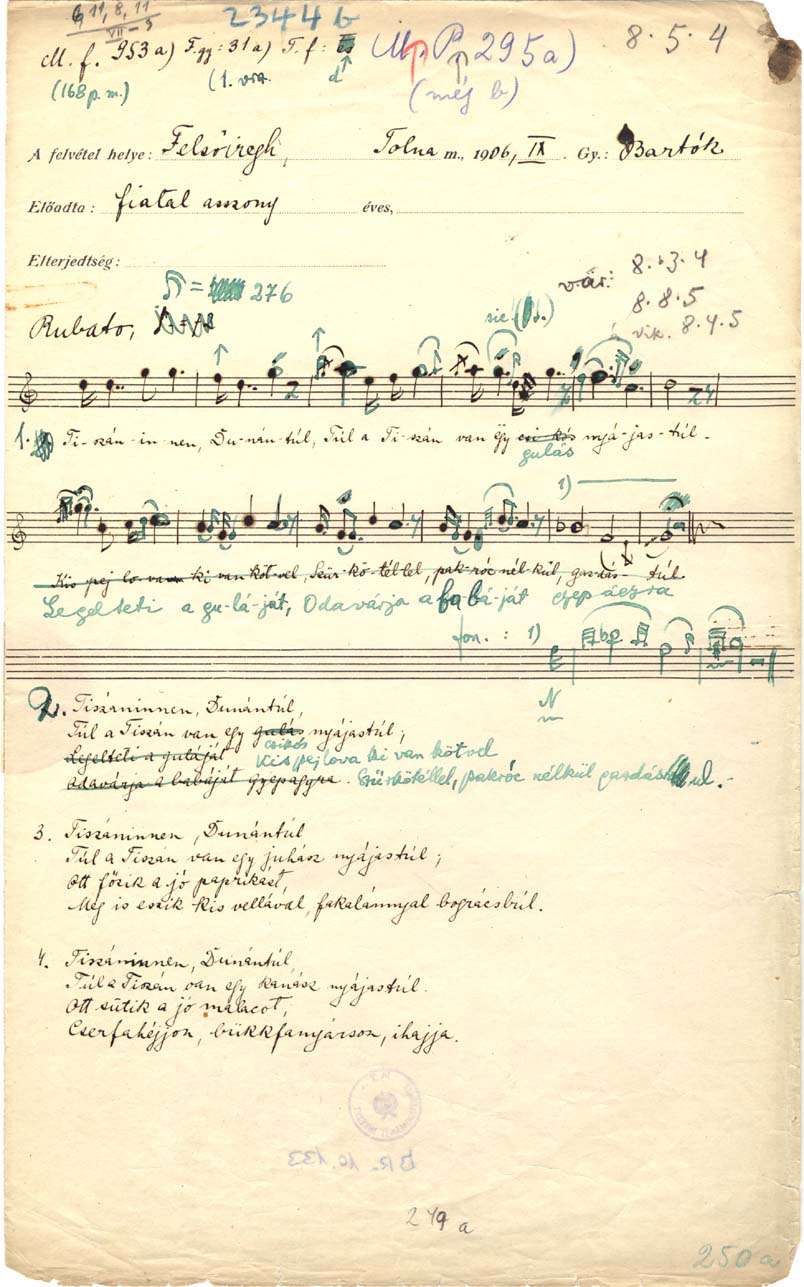 G, 11, 8, 11
VII - 9
23446
8. 5. 4
M. f. 953 a) F. gy: 31 a) T. f: (M. P. 295 a)
(168 p. m.) (1. vra. d (még b)
A felvétel helye: Felsőiregh, Tolna m., 1906, IX. Gy.: Bartók
Előadta: fiatal asszony éves,
Elterjedtség:
vár: 8. 13. 4
8. 8. 5
vik. 8. 4. 5
= 276
Rubato,
1. Ti-szán-in-nen, Du-nán-túl, Túl a Ti-szán van egy csi-kós nyá-jas-túl.
gulás
1)
Kis pej lo-va ki van köt-vel, Szür-kö-tél-lel, pak-róc nél-kül, gaz-dás- túl
Legelteti a gu-lá-ját, Odavárja a babáját gyep ágyra
fon. : 1)
2. Tiszáninnen, Dunántúl,
Túl a Tiszán van egy gulás nyájastúl;
csikós
Legelteti a guláját Kis pej lova ki van kötvel
Odavárja a babáját gyepagyra. Szürkötéllel, pakróc nélkül
3. Tiszáninnen, Dunántúl
Túl a Tiszán van egy juhász nyájastúl;
Ott főzik a jó paprikást,
Meg is eszik kis vellával, fakalánnyal bográcsbúl.
4. Tiszáninnen, Dunántúl,
Túl a Tiszán van egy kanász nyájastúl.
Ott sütik a jó malacot,
Cserfahéjjon, bükkfanyárson, ihajja.
BR. 10.133
249 a
250 a